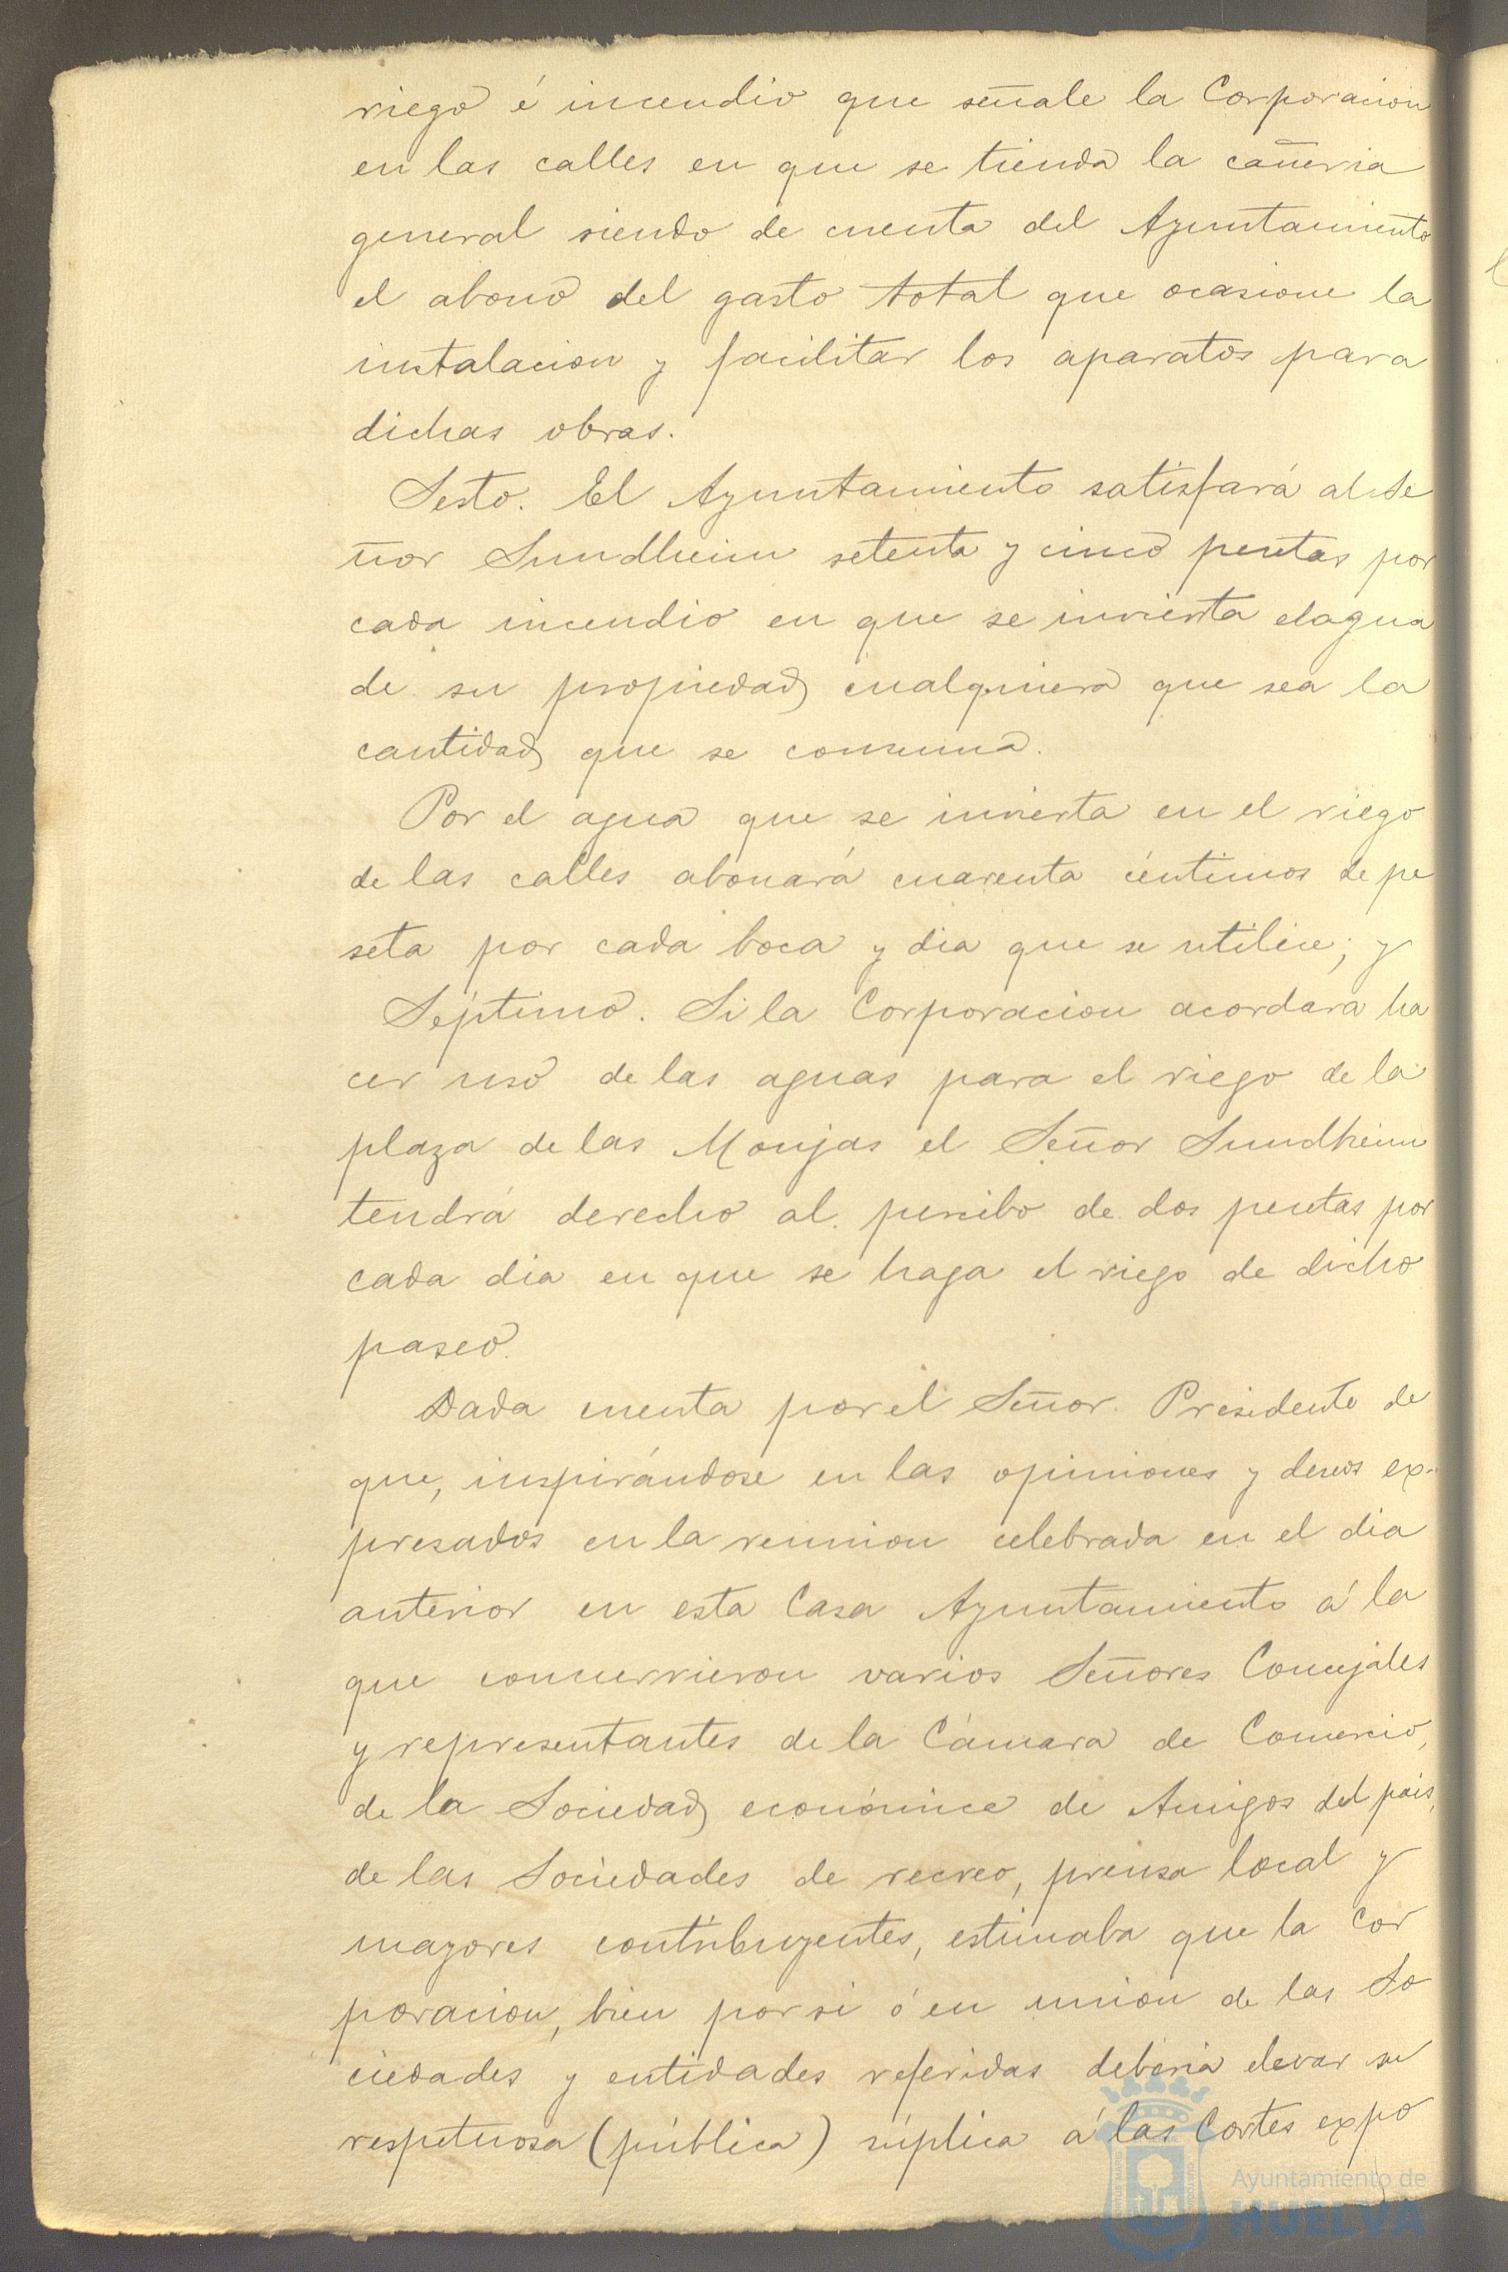 riego é incendio que señale la Corporacion
en las calles en que se tienda la cañeria
general siendo de cuenta del Ayuntamiento
el abono del gasto total que ocasione la
instalacion y facilitar los aparatos para
dichas obras.
Sesto. El Ayuntamiento satisfará al Se
ñor Sundheim setenta y cinco pesetas por
cada incendio en que se invierta el agua
de su propiedad cualquiera que sea la
cantidad que se consuma.
Por el agua que se invierta en el riego
de las calles abonará cuarenta céntimos de pe
seta por cada boca y dia que se utilice; y
Séptimo. Si la Corporacion acordara ha
cer uso de las aguas para el riego de la
plaza de las Monjas el Señor Sundheim
tendrá derecho al percibo de dos pesetas por
cada dia en que se haga el riego de dicho
paseo.
Dada cuenta por el Señor Presidente de
que, inspirándose en las opiniones y deseos ex-
presados en la reunion celebrada en el dia
anterior en esta Casa Ayuntamiento á la
que concurrieron varios Señores Concejales
y representantes de la Cámara de Comercio,
de la Sociedad económica de Amigos del pais,
de las Sociedades de recreo, prensa local y
mayores contribuyentes, estimaba que la Cor
poracion, bien por si ó en union de las So
ciedades y entidades referidas deberia elevar su
respetuosa (pública) súplica á las Cortes expo
Ayuntamiento de
HUELVA